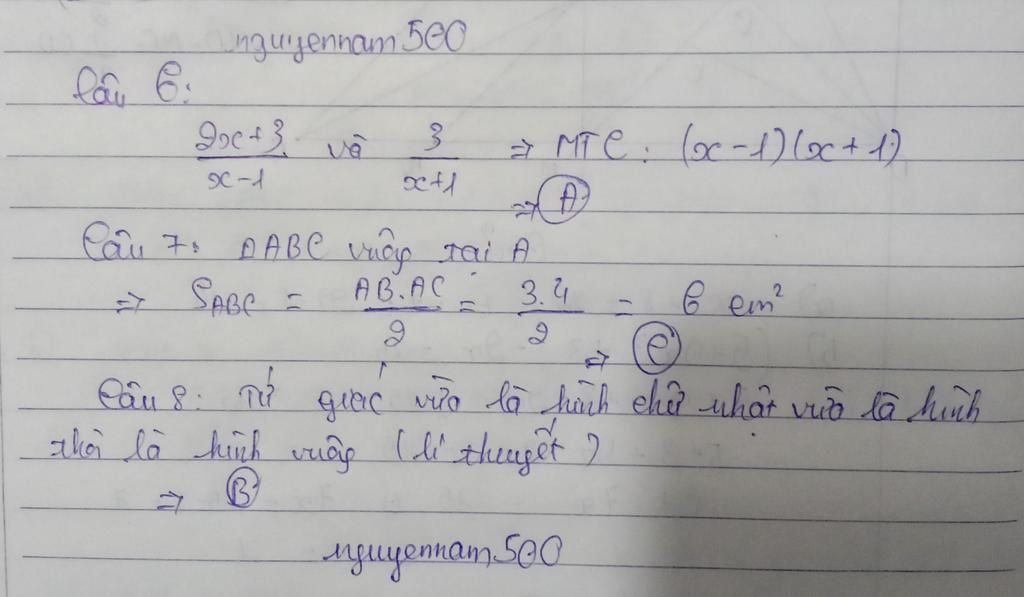 nguyennam500
Câu 6:
2x+3/x-1 và 3/x+1 => MTC: (x-1)(x+1)
=> A
Câu 7: ΔABC vuông tại A
=> SABC = AB.AC/2 = 3.4/2 = 6 cm²
=> C
Câu 8: Tứ giác vừa là hình chữ nhật vừa là hình
thoi là hình vuông (lí thuyết)
=> B
nguyennam500